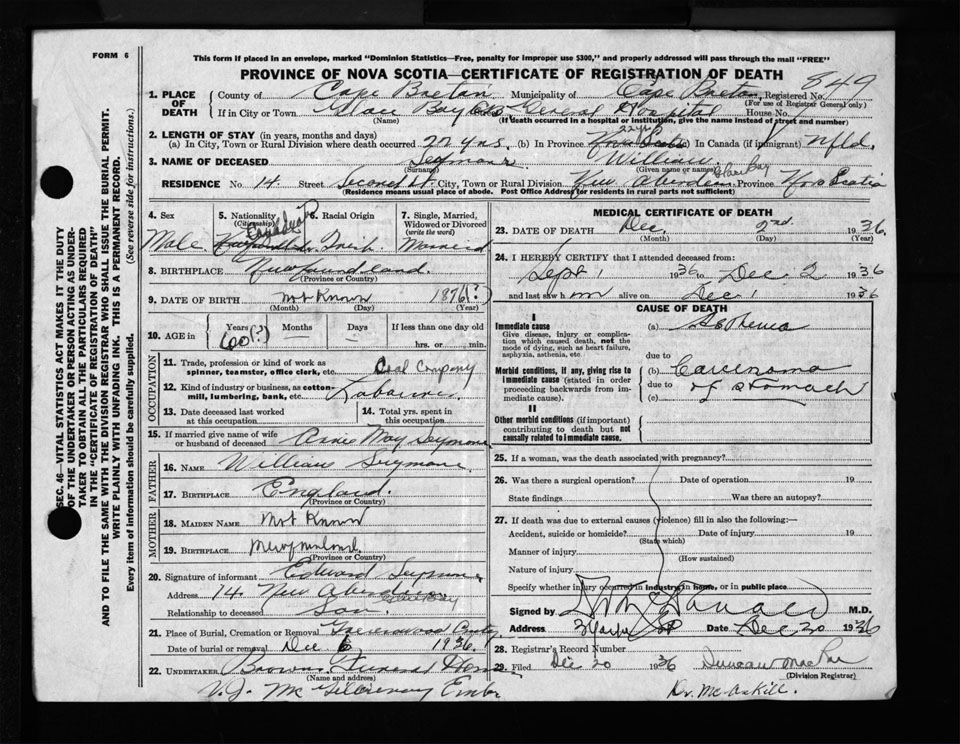 FORM 6
This form if placed in an envelope, marked "Dominion Statistics—Free, penalty for improper use $300," and properly addressed will pass through the mail "FREE"
PROVINCE OF NOVA SCOTIA—CERTIFICATE OF REGISTRATION OF DEATH
849
1. PLACE OF DEATH
County of Cape Breton Municipality of Cape Breton Registered No.
(For use of Registrar General only)
If in City or Town Glace Bay General Hospital House No.
(Name) (If death occurred in a hospital or institution, give the name instead of street and number)
2. LENGTH OF STAY (in years, months and days)
(a) In City, Town or Rural Division where death occurred 22 yrs. (b) In Province 22 yrs Nova Scotia (c) In Canada (if immigrant) Nfld.
3. NAME OF DECEASED Seymour William
(Surname) (Given name or names)
Glace Bay
RESIDENCE No. 14 Street Second St. City, Town or Rural Division New Aberdeen Province Nova Scotia
(Residence means usual place of abode. Post Office Address for residents in rural parts not sufficient)
4. Sex Male
5. Nationality (Citizenship) Canada
6. Racial Origin
7. Single, Married, Widowed or Divorced (write the word) Married
8. BIRTHPLACE Newfoundland.
(Province or Country)
9. DATE OF BIRTH Not Known 1876(?)
(Month) (Day) (Year)
10. AGE in Years 60(?) Months — Days — If less than one day old
hrs. or min.
OCCUPATION
11. Trade, profession or kind of work as spinner, teamster, office clerk, etc. Coal Company
12. Kind of industry or business, as cotton-mill, lumbering, bank, etc. Labourer
13. Date deceased last worked at this occupation
14. Total yrs. spent in this occupation
15. If married give name of wife or husband of deceased Annie May Seymour
FATHER
16. NAME William Seymour
17. BIRTHPLACE England.
(Province or Country)
MOTHER
18. MAIDEN NAME Not Known
19. BIRTHPLACE Newfoundland
(Province or Country)
20. Signature of informant Edward Seymour
Address 14. New Aberdeen Glace Bay
Relationship to deceased Son
21. Place of Burial, Cremation or Removal Greenwood Cmty
Date of burial or removal Dec 6 1936.
22. UNDERTAKER Browns Funeral Home
(Name and address)
V.J. Mc Embr
MEDICAL CERTIFICATE OF DEATH
23. DATE OF DEATH Dec. 2nd 1936.
(Month) (Day) (Year)
24. I HEREBY CERTIFY that I attended deceased from:
Sept 1 1936 to Dec 2 1936
and last saw him alive on Dec 1 1936
CAUSE OF DEATH
I
Immediate cause
Give disease, injury or complication which caused death, not the mode of dying, such as heart failure, asphyxia, asthenia, etc.
(a) Asthenia
due to
Morbid conditions, if any, giving rise to immediate cause (stated in order proceeding backwards from immediate cause).
(b) Carcinoma
due to of stomach
(c)
II
Other morbid conditions (if important) contributing to death but not causally related to immediate cause.
25. If a woman, was the death associated with pregnancy?
26. Was there a surgical operation? Date of operation 19
State findings Was there an autopsy?
27. If death was due to external causes (violence) fill in also the following:—
Accident, suicide or homicide? Date of injury 19
(State which)
Manner of injury
(How sustained)
Nature of injury
Specify whether injury occurred in industry, in home, or in public place.
Signed by M.D.
Address Date Dec 20 1936
28. Registrar's Record Number
29. Filed Dec 20 1936 Duncan MacRae
(Division Registrar)
Dr. McAskill.
SEC. 46—VITAL STATISTICS ACT MAKES IT THE DUTY
OF THE UNDERTAKER OR PERSON ACTING AS UNDER-
TAKER TO OBTAIN ALL THE PARTICULARS REQUIRED
IN THE "CERTIFICATE OF REGISTRATION OF DEATH"
AND TO FILE THE SAME WITH THE DIVISION REGISTRAR WHO SHALL ISSUE THE BURIAL PERMIT.
WRITE PLAINLY WITH UNFADING INK. THIS IS A PERMANENT RECORD.
Every item of information should be carefully supplied. (See reverse side for instructions.)